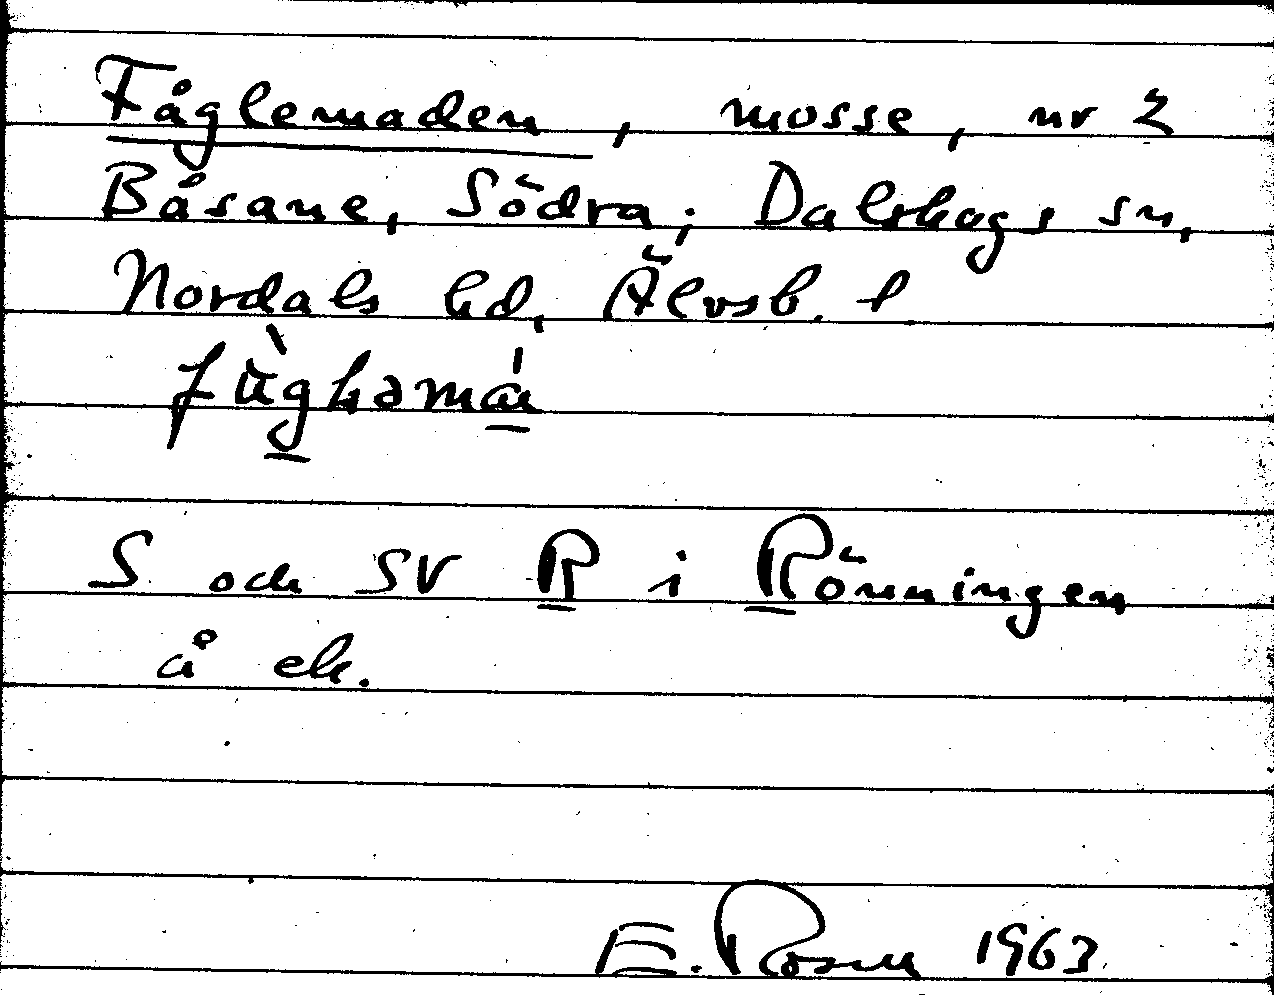 Fåglemaden, mosse, nr 2
Båsane, Södra; Dalskogs sn,
Nordals hd, Älvsb. l
S och SV R i Rönningen
å ek.
E. Rosen 1963